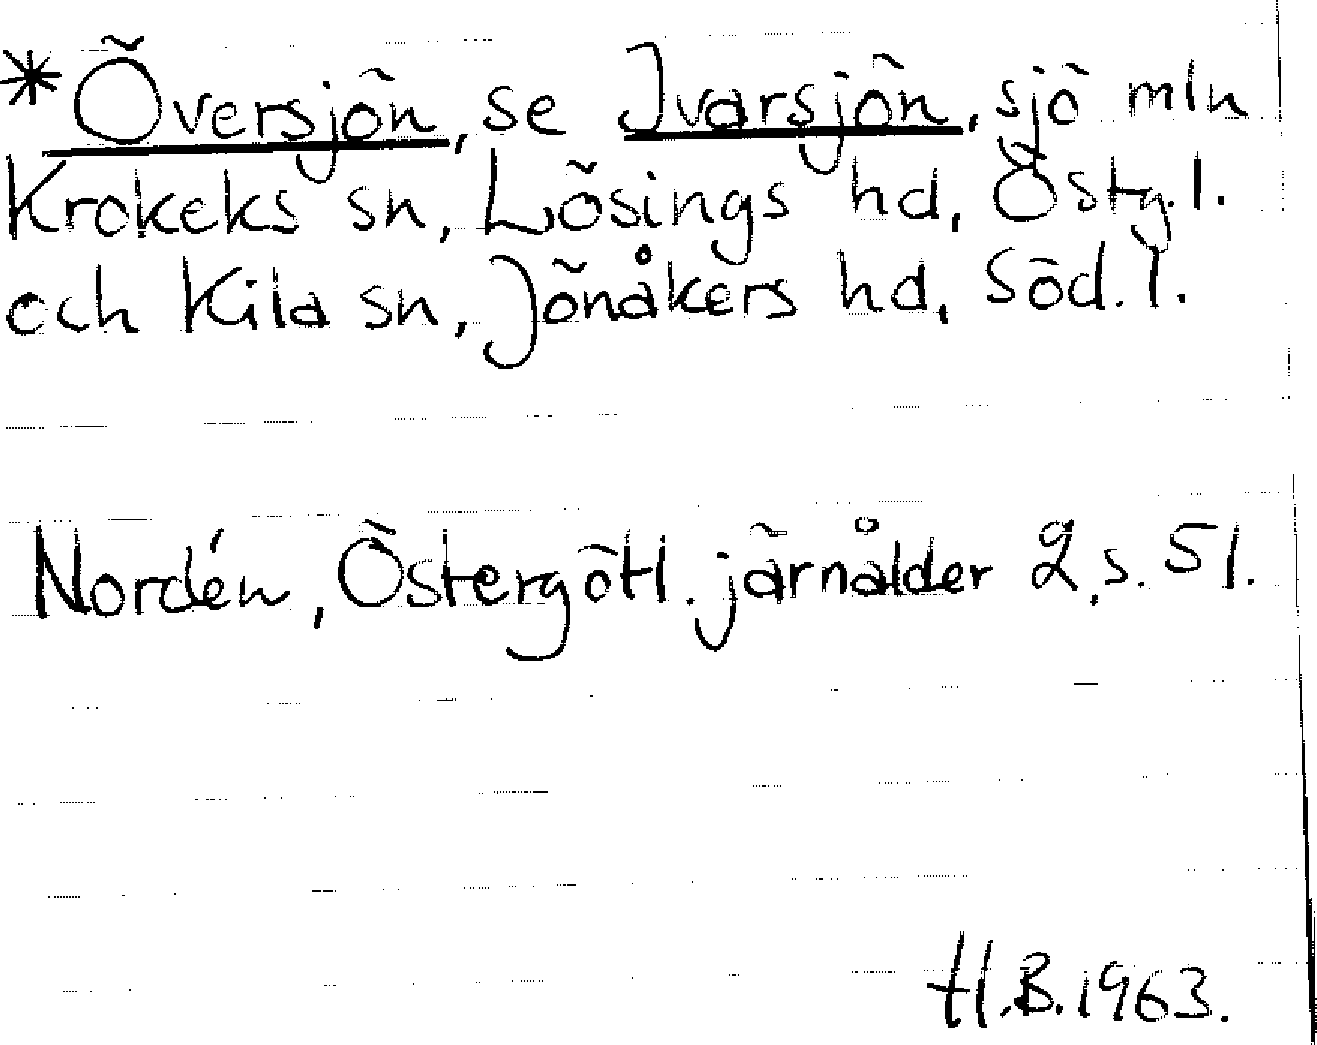 *Översjön, se Ivarsjön, sjö mln
Krokeks sn, Lösings hd, Östg.l.
och Kila sn, Jönåkers hd, Söd.l.
Nordén, Östergötl. järnålder 2, s. 51.
H.B. 1963.